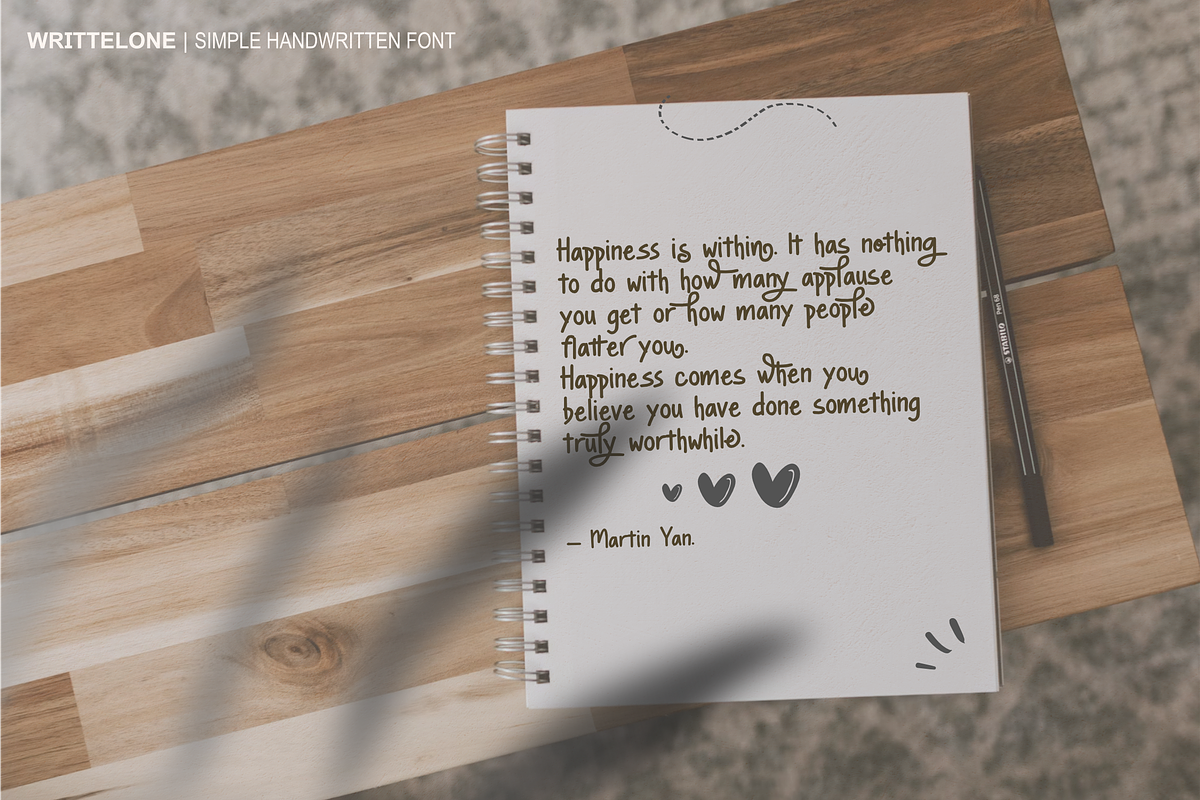 WRITTELONE | SIMPLE HANDWRITTEN FONT
Happiness is within. It has nothing
to do with how many applause
you get or how many people
flatter you.
Happiness comes when you
believe you have done something
truly worthwhile.
– Martin Yan.
STABILO Pen 68